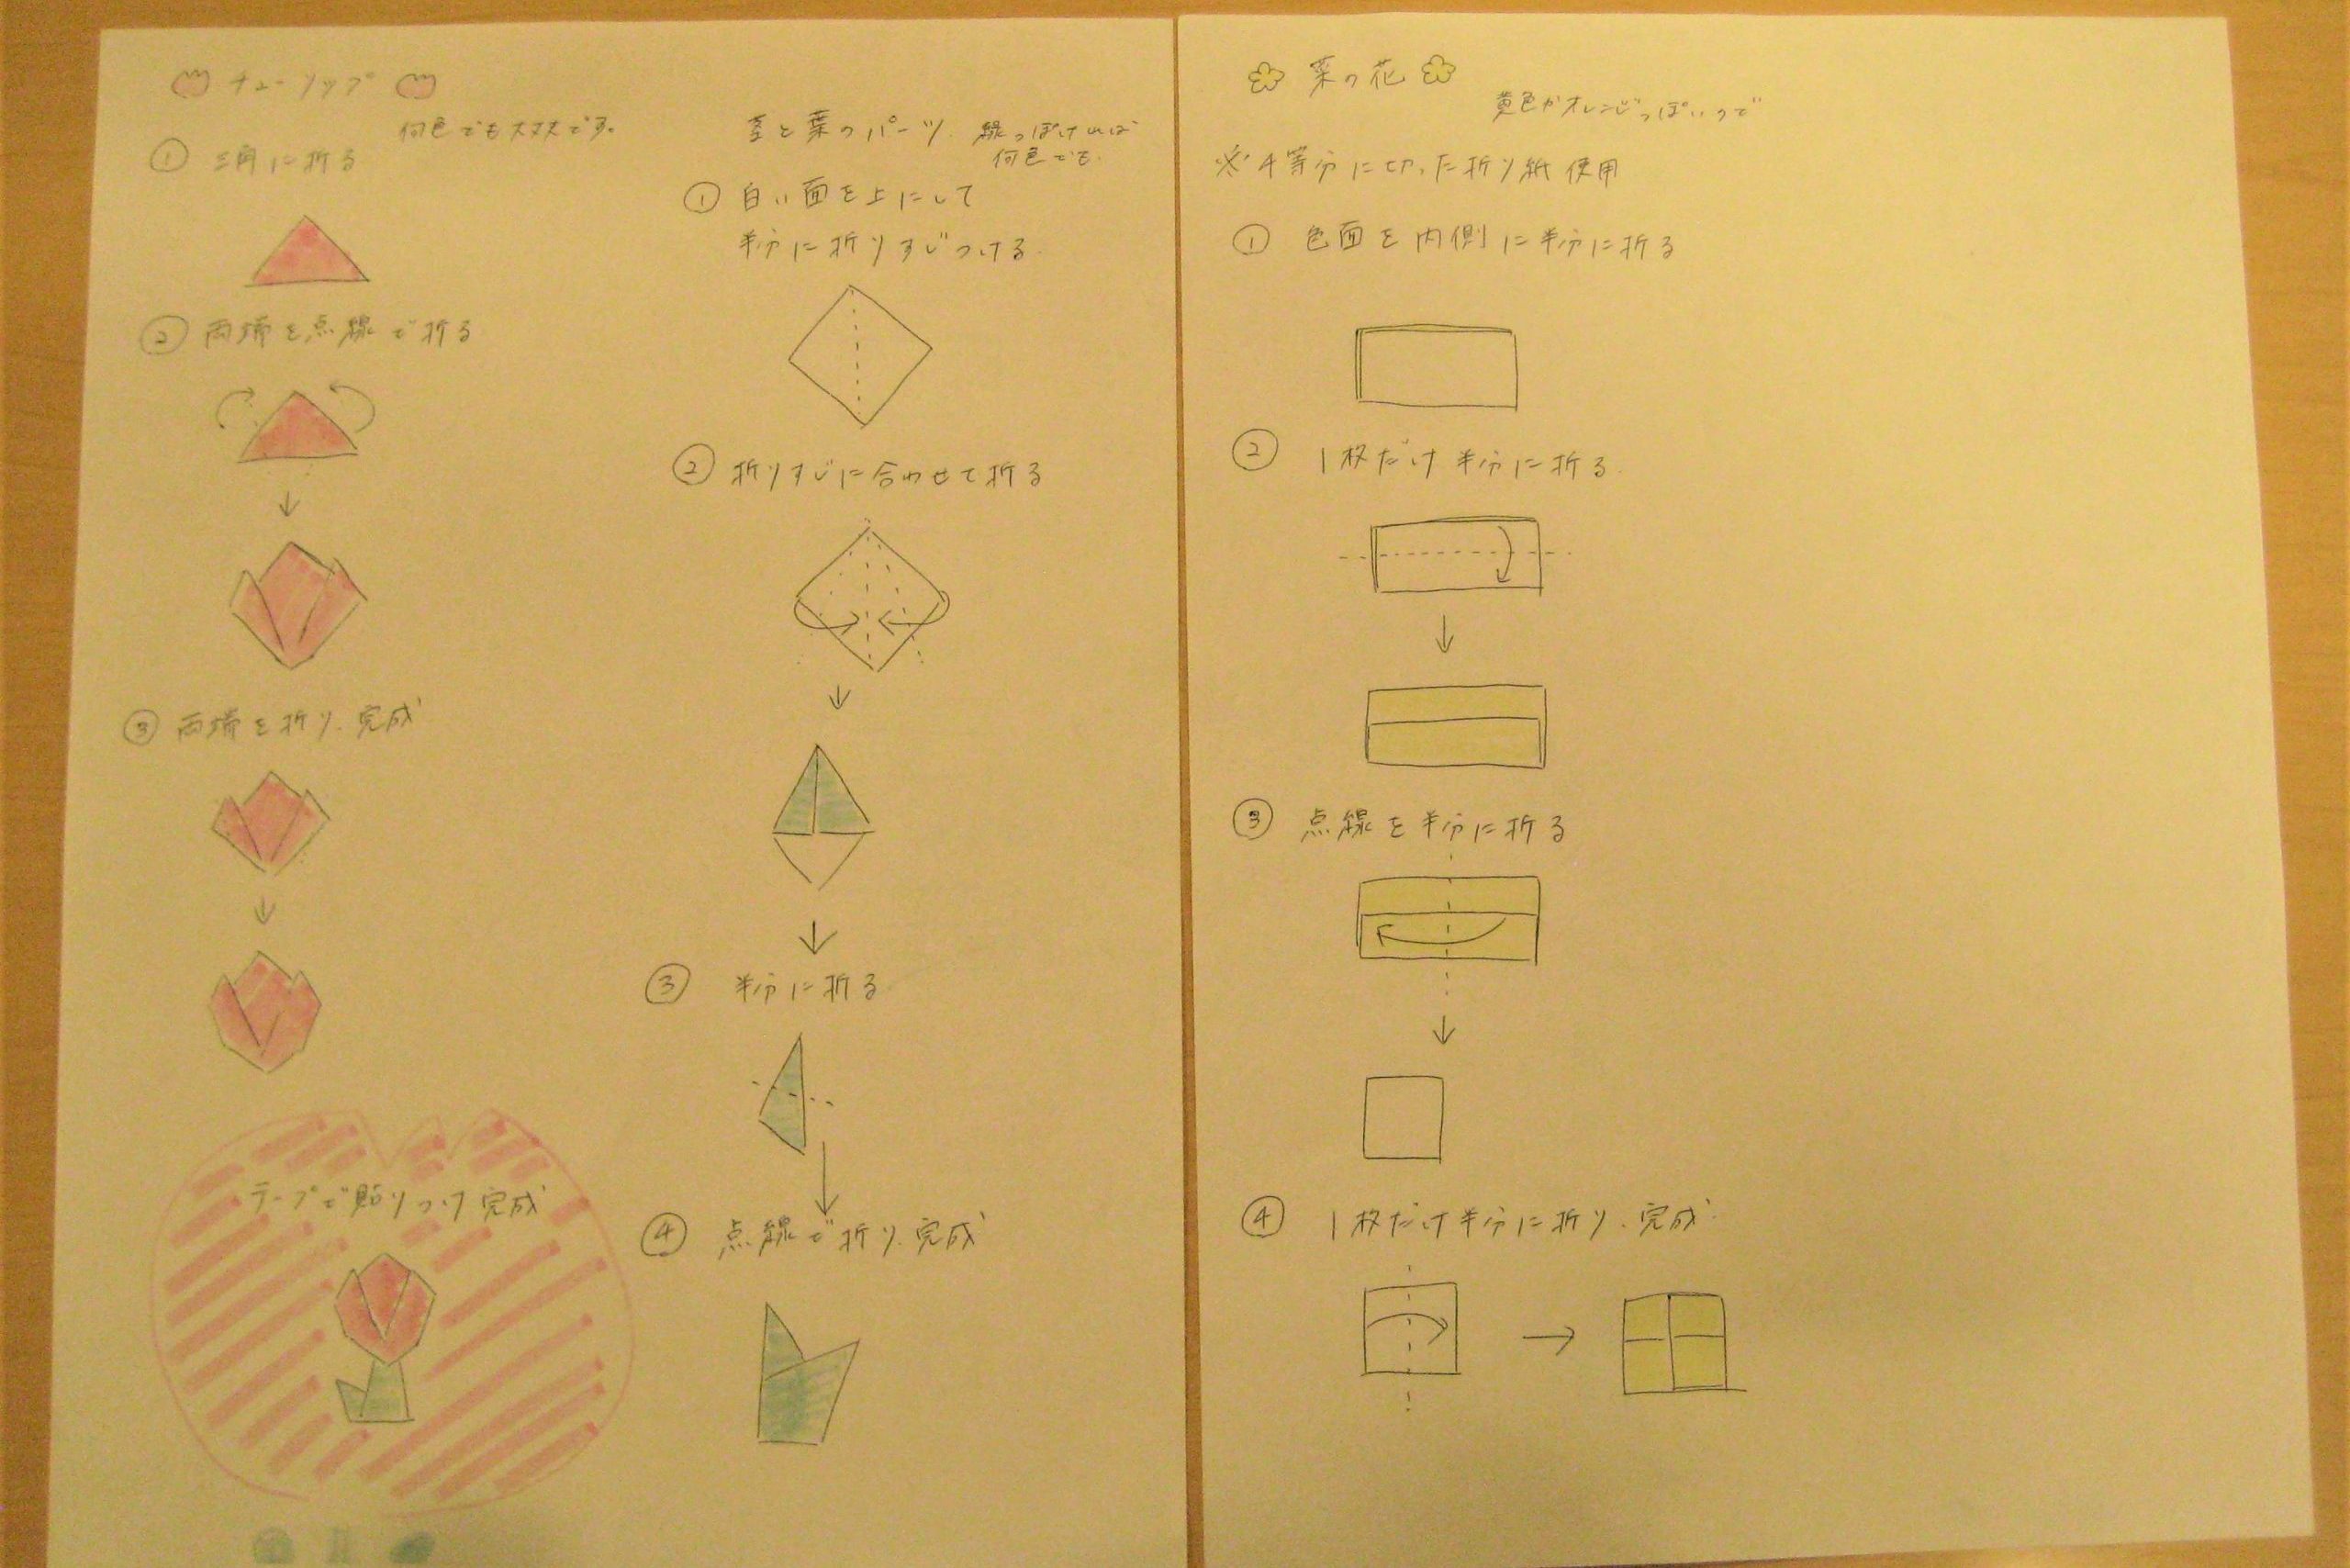 チューリップ
何色でも大丈夫です。
① 三角に折る
② 両端を点線で折る
③ 両端を折り、完成
テープで貼りつけ完成
茎と葉のパーツ
緑っぽければ
何色でも
① 白い面を上にして
半分に折りすじつける
② 折りすじに合わせて折る
③ 半分に折る
④ 点線で折り、完成
菜の花
黄色かオレンジっぽいので
※4等分に切った折り紙使用
① 色面を内側に半分に折る
② 1枚だけ半分に折る
③ 点線を半分に折る
④ 1枚だけ半分に折り、完成